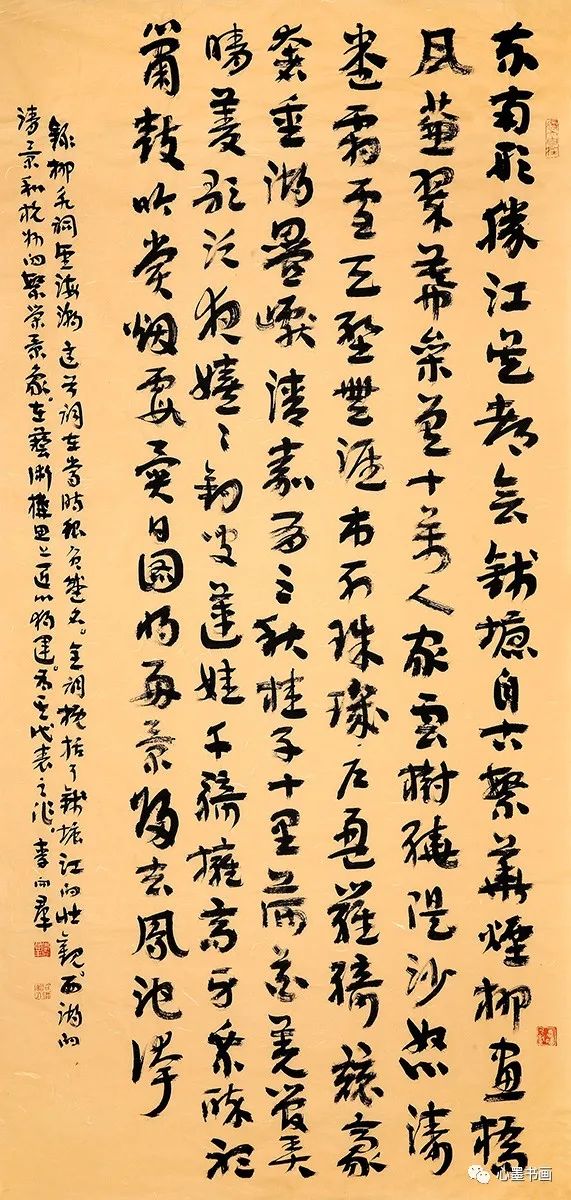 东南形勝江吴都会錢塘自古繁華煙柳画橋
风簾翠幕參差十萬人家雲樹繞隄沙怒濤
卷霜雪天塹無涯市列珠璣户盈羅綺競豪
奢重湖疊巘清嘉有三秋桂子十里荷花羌管弄
晴菱歌泛夜嬉〻釣叟蓮娃千騎擁高牙乘醉聽
簫鼓吟賞烟霞異日圖将好景歸去鳳池誇
錄柳永詞望海潮這首詞在當時極負盛名。全詞概括了錢塘江的壯觀。西湖的
清景和杭州的繁榮景象。在藝術構思上匠心獨運。為其代表之作。李
心墨书画